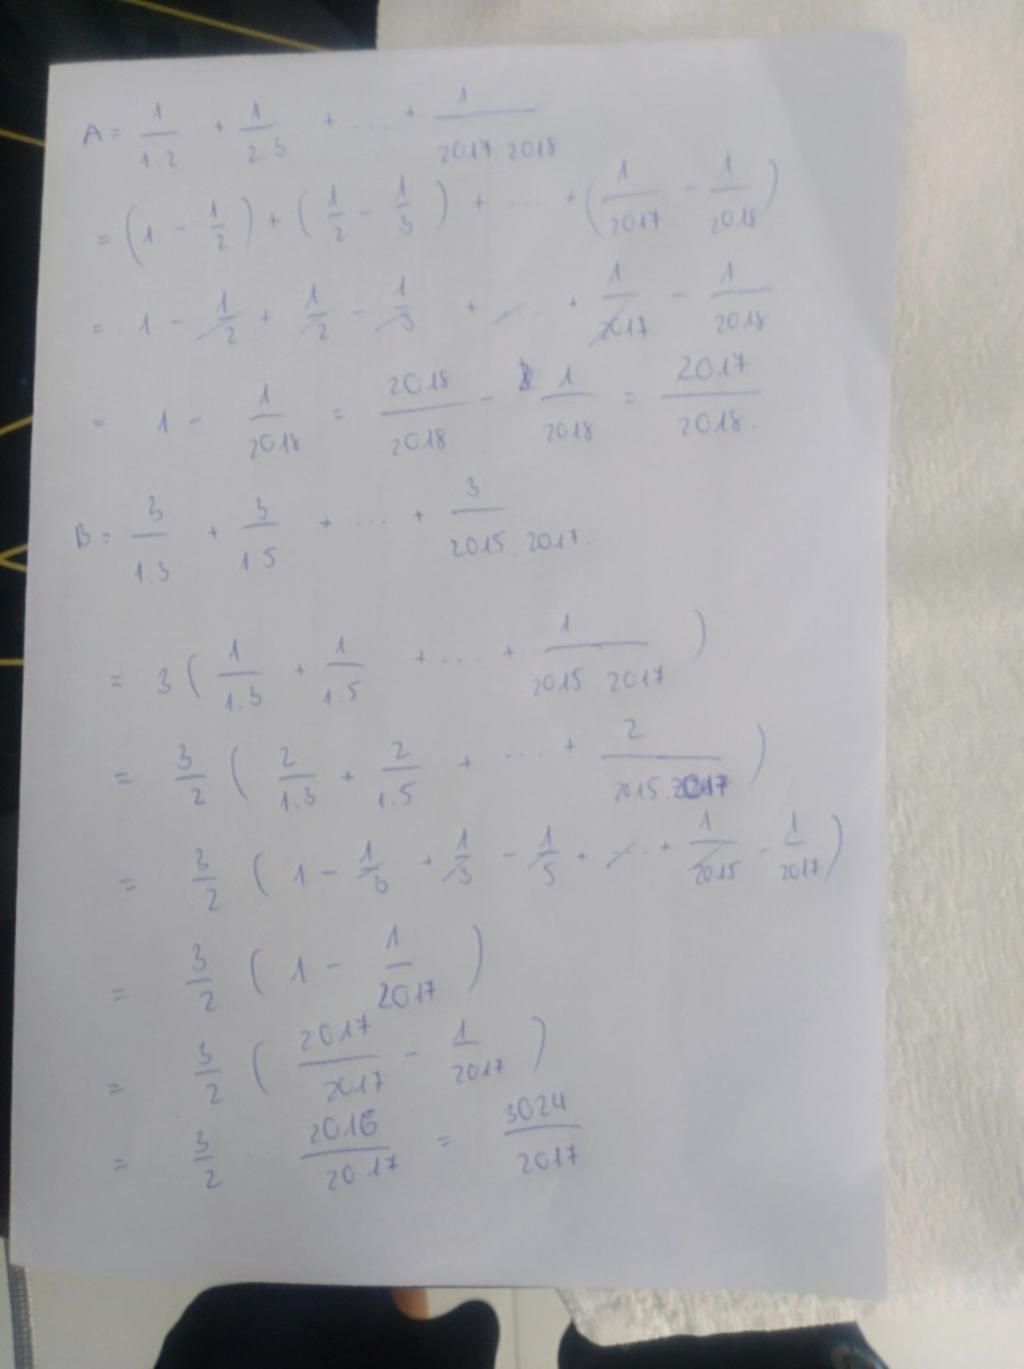 A = 1/1.2 + 1/2.3 + ... + 1/2017.2018
= (1 - 1/2) + (1/2 - 1/3) + ... + (1/2017 - 1/2018)
= 1 - 1/2 + 1/2 - 1/3 + ... + 1/2017 - 1/2018
= 1 - 1/2018 = 2018/2018 - 1/2018 = 2017/2018.
B = 3/1.3 + 3/1.5 + ... + 3/2015.2017.
= 3 ( 1/1.3 + 1/1.5 + ... + 1/2015.2017 )
= 3/2 ( 2/1.3 + 2/1.5 + ... + 2/2015.2017 )
= 3/2 ( 1 - 1/3 + 1/3 - 1/5 + ... + 1/2015 - 1/2017 )
= 3/2 ( 1 - 1/2017 )
= 3/2 ( 2017/2017 - 1/2017 )
= 3/2 . 2016/2017 = 3024/2017